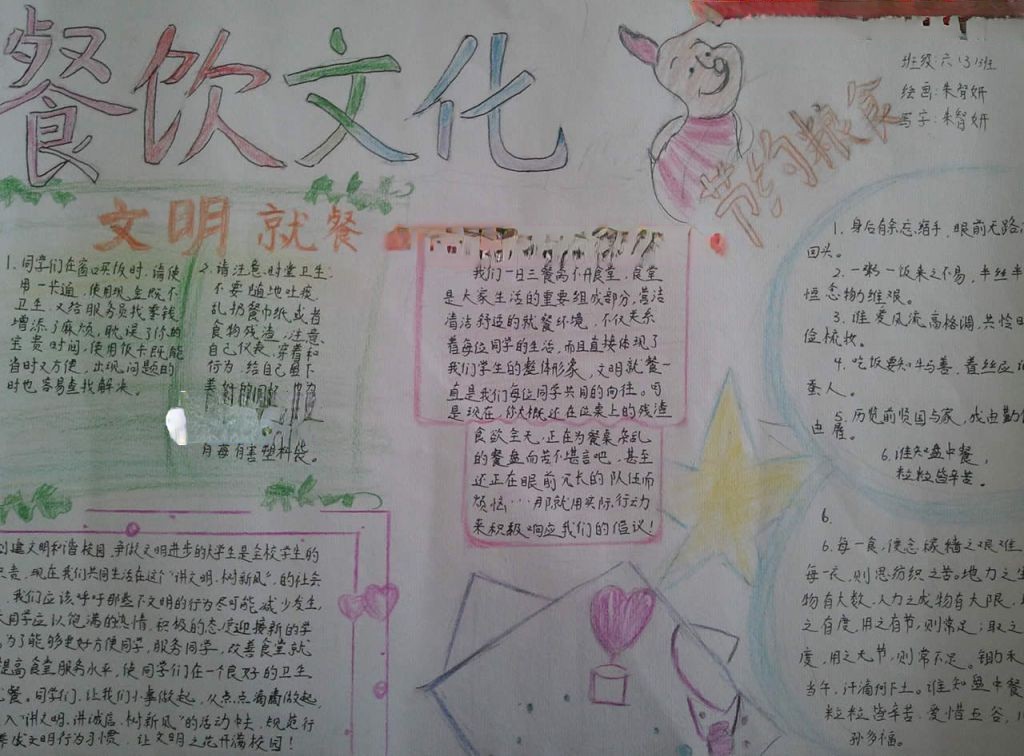 餐饮文化
班级:六(3)班
绘画:朱智妍
写字:朱智妍
节约粮食
文明就餐
1、同学们在窗口买饭时,请使
用一卡通,使用现金既不
卫生,又给服务员找零钱
增添了麻烦,耽误了你的
宝贵时间,使用饭卡既能
省时又方便,出现问题的
时也容易查找解决。
2、请注意,时堂卫生,
不要随地吐痰,
乱扔餐巾纸,或者
食物残渣,注意
自己仪表,穿着和
行为,给自己留下
月每有害塑料袋。
我们一日三餐离不开食堂,食堂
是大家生活的重要组成部分,营洁
清洁舒适的就餐环境,不仅关系
着每位同学的生活,而且直接体现了
我们学生的整体形象,文明就餐一
直是我们每位同学共同的向往。可
是现在,你大概还在位桌上的残渣
食欲全无,正在为餐桌杂乱
的餐盘向苦不堪言吧,甚至
还正在眼前冗长的队伍而
烦恼…那就用实际行动
来积极响应我们的倡议!
1、身后有余忘缩手,眼前无路
回头。
2、一粥一饭来之不易,半丝半
恒念物维艰。
3、谁爱风流高格调,共怜时
俭梳妆。
4、吃饭要知牛与善,着丝应
蚕人。
5、历览前贤国与家,成由勤
由奢。
6、谁知盘中餐,
粒粒皆辛苦。
6.
6、每一食,便念稼穑之艰难
每一衣,则思纺织之苦。地力之生
物有大数,人力之成物有大限,
之有度,用之有节,则常足;取之
度,用之无节,则常不足。锄禾
当午,汗滴何下土。谁知盘中餐
粒粒皆辛苦,爱惜五谷,
孙多福。
创建文明和谐校园,争做文明进步的大学生是全校学生的
责,现在我们共同生活在这个“讲文明,树新风”的社会
,我们应该呼吁那些不文明的行为尽可能减少发生,
同学应以饱满的热情,积极的态度迎接新的学
为了能够更好方便同学,服务同学,改善食堂就
提高食堂服务水平,使同学们在一个良好的卫生
餐。同学们,让我们小事做起,从点点滴滴做起,
入“讲文明,讲诚信,树新风”的活动中去,规范行
养成文明行为习惯,让文明之花开满校园!